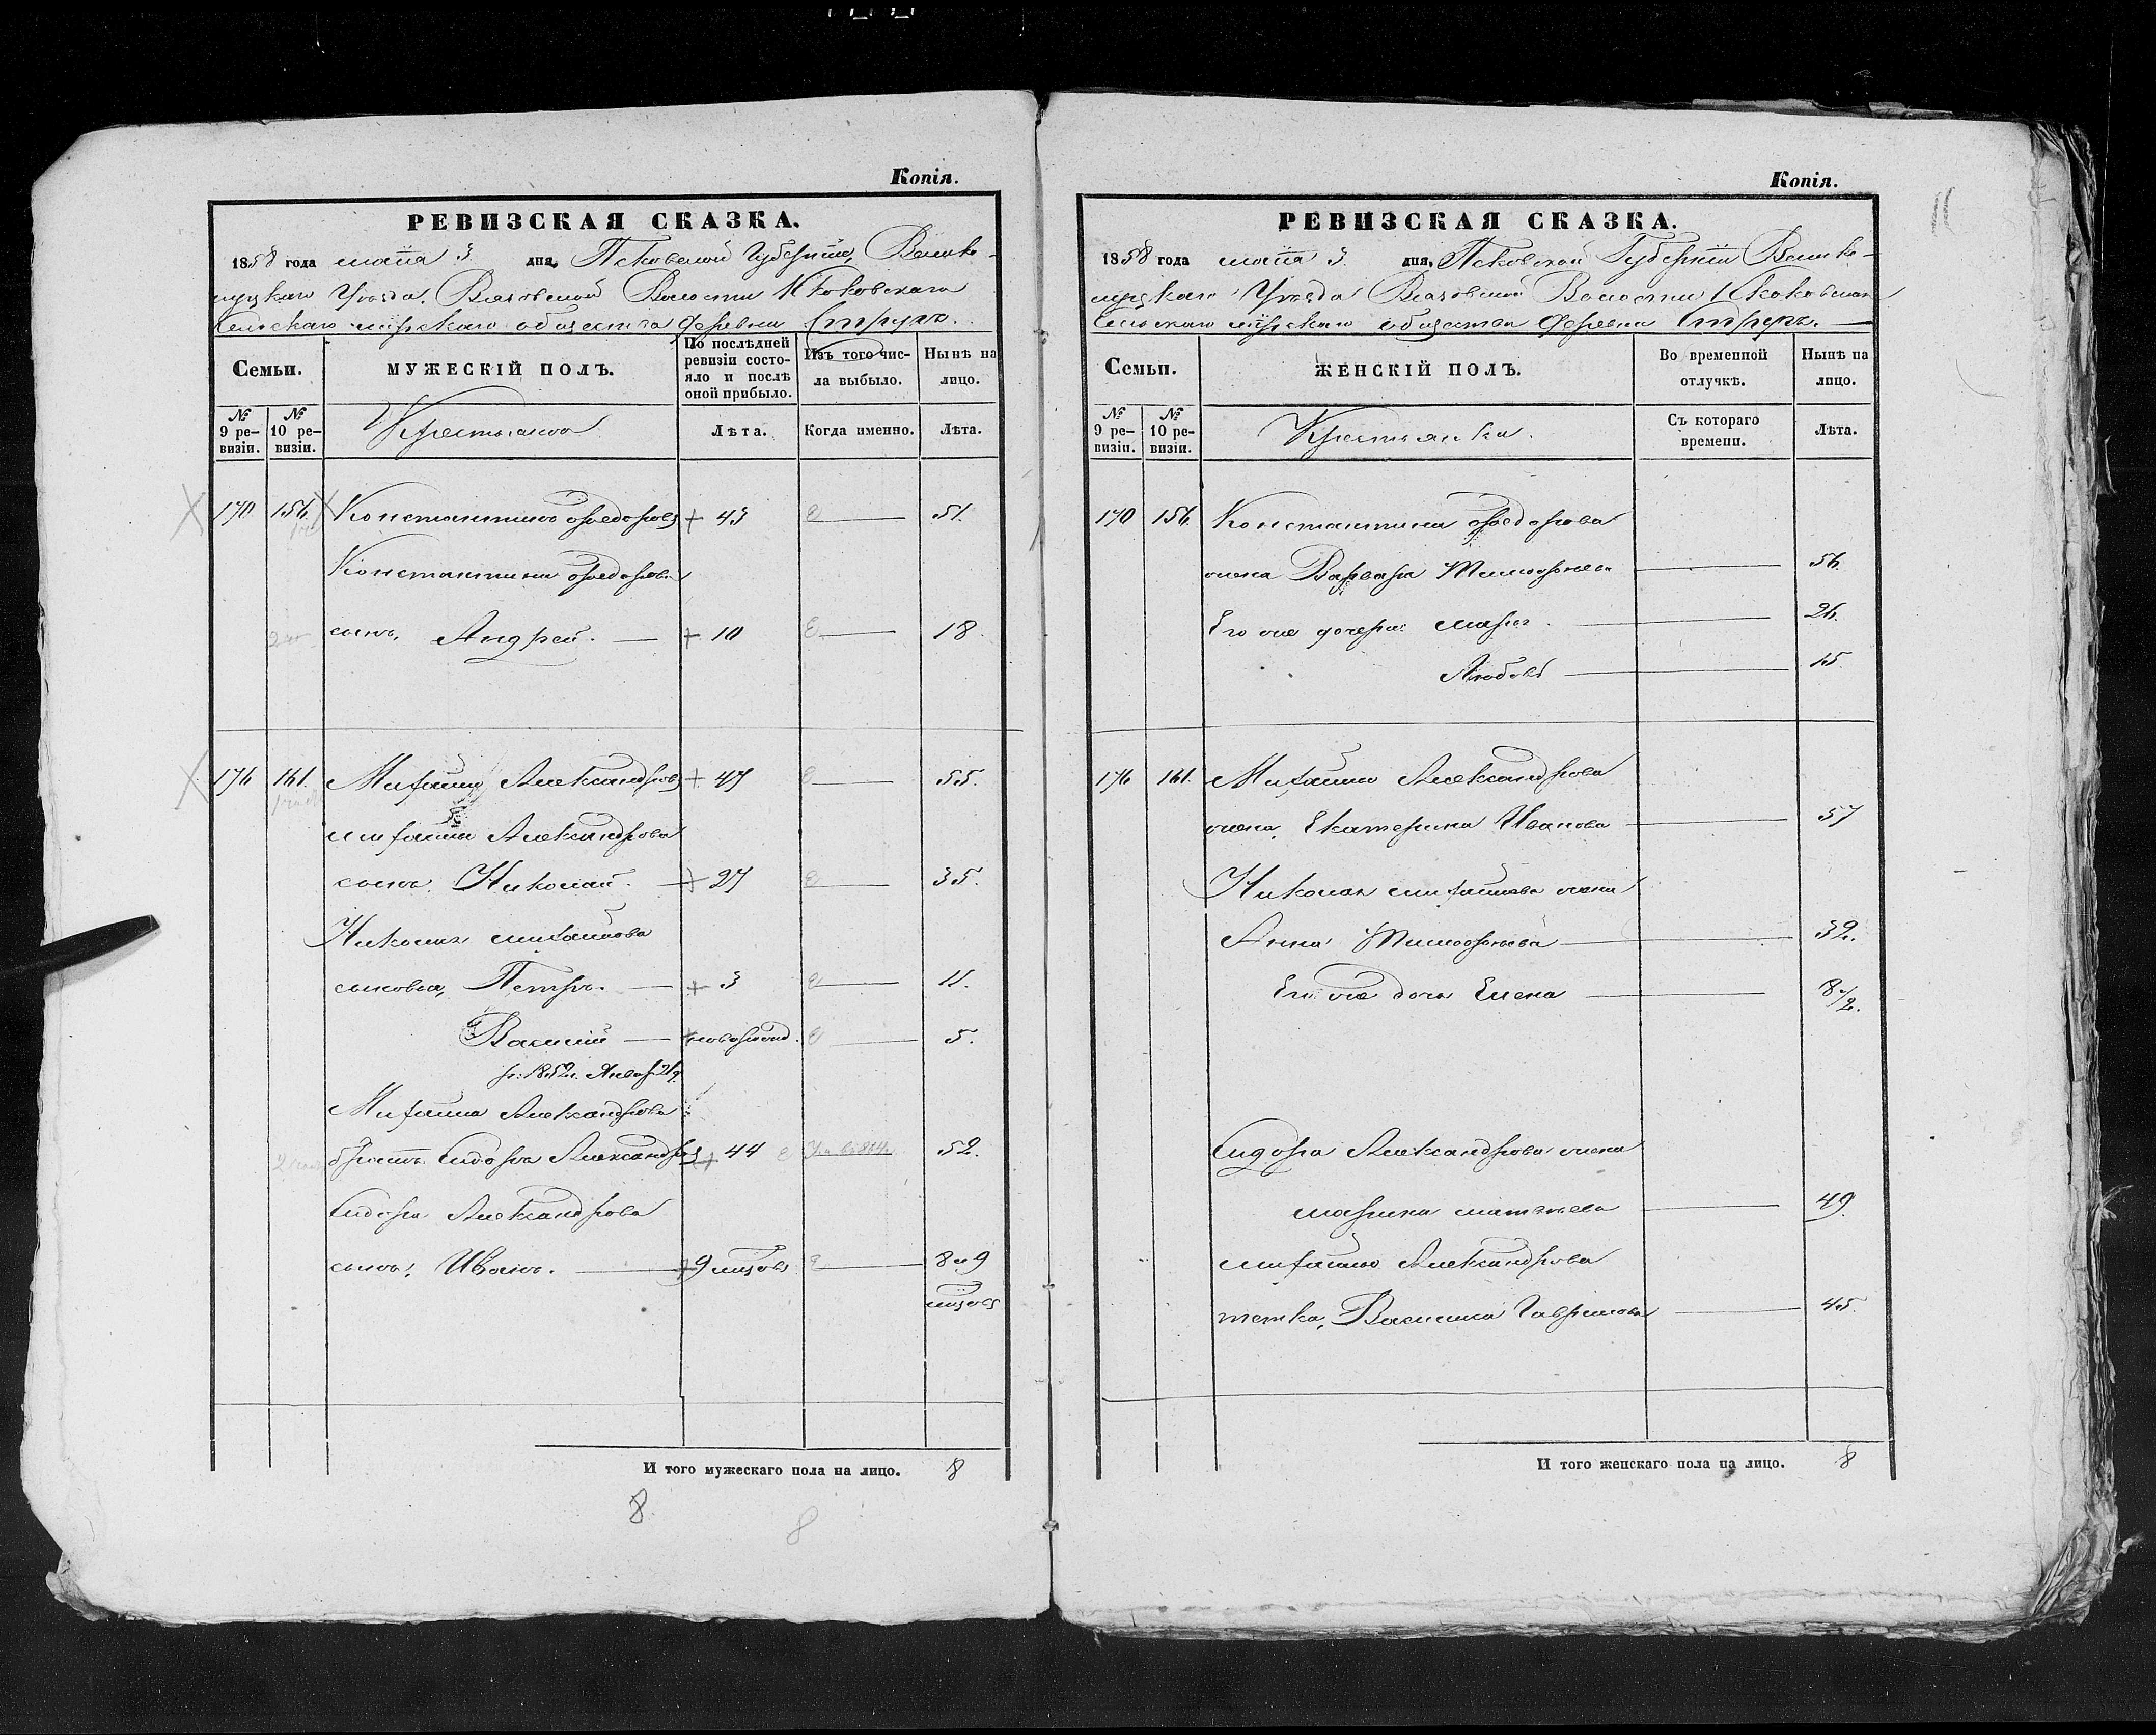 Копія.
РЕВИЗСКАЯ СКАЗКА.
1858 года маія 3 дня, Псковской Губерніи, Велико-
луцкаго Уѣзда, Вязовской Волости
Сельскаго мірскаго общества деревни
Семьи.
МУЖЕСКІЙ ПОЛЪ.
По послѣдней ревизіи состояло и послѣ оной прибыло.
Изъ того числа выбыло.
Нынѣ на лицо.
№ 9 ревизіи.
№ 10 ревизіи.
Крестьяне
Лѣта.
Когда именно.
Лѣта.
170 156 Константинъ Ѳедоровъ + 43 51.
Константина Ѳедорова
сынъ, Андрей. + 10 18.
176 161. Михайло Александровъ + 47 55.
Михайлы Александрова
сынъ, Николай. + 27 35.
Николая Михайлова
сыновья, Петръ. + 3 11.
Василій новорожд. 5.
р: 1852г. Янвр. 21 д.
Михайла Александрова
братъ Сидоръ Александровъ + 44 52.
Сидора Александрова
сынъ, Иванъ. + 9 мѣцовъ 8 и 9
мѣцовъ
И того мужескаго пола на лицо. 8
8
8
Копія.
РЕВИЗСКАЯ СКАЗКА.
1858 года маія 3 дня, Псковской Губерніи Велико-
луцкаго Уѣзда Вязовской Волости
Сельскаго мірскаго общества деревни
Семьи.
ЖЕНСКІЙ ПОЛЪ.
Во временной отлучкѣ.
Нынѣ на лицо.
№ 9 ревизіи.
№ 10 ревизіи.
Крестьянки.
Съ котораго времени.
Лѣта.
170 156. Константина Ѳедорова
жена Варвара Тимофѣева 56.
Его же дочери: Марья 26.
Любовь 15.
176 161. Михайлы Александрова
жена, Екатерина Иванова 57
Николая Михайлова жена
Анна Тимофѣева 32.
Его же дочь Елена 8 1/2.
Сидора Александрова жена
Марина Матвѣева 49.
Михайлы Александрова
тетка, Василиса Гаврилова 45.
И того женскаго пола на лицо. 8
11